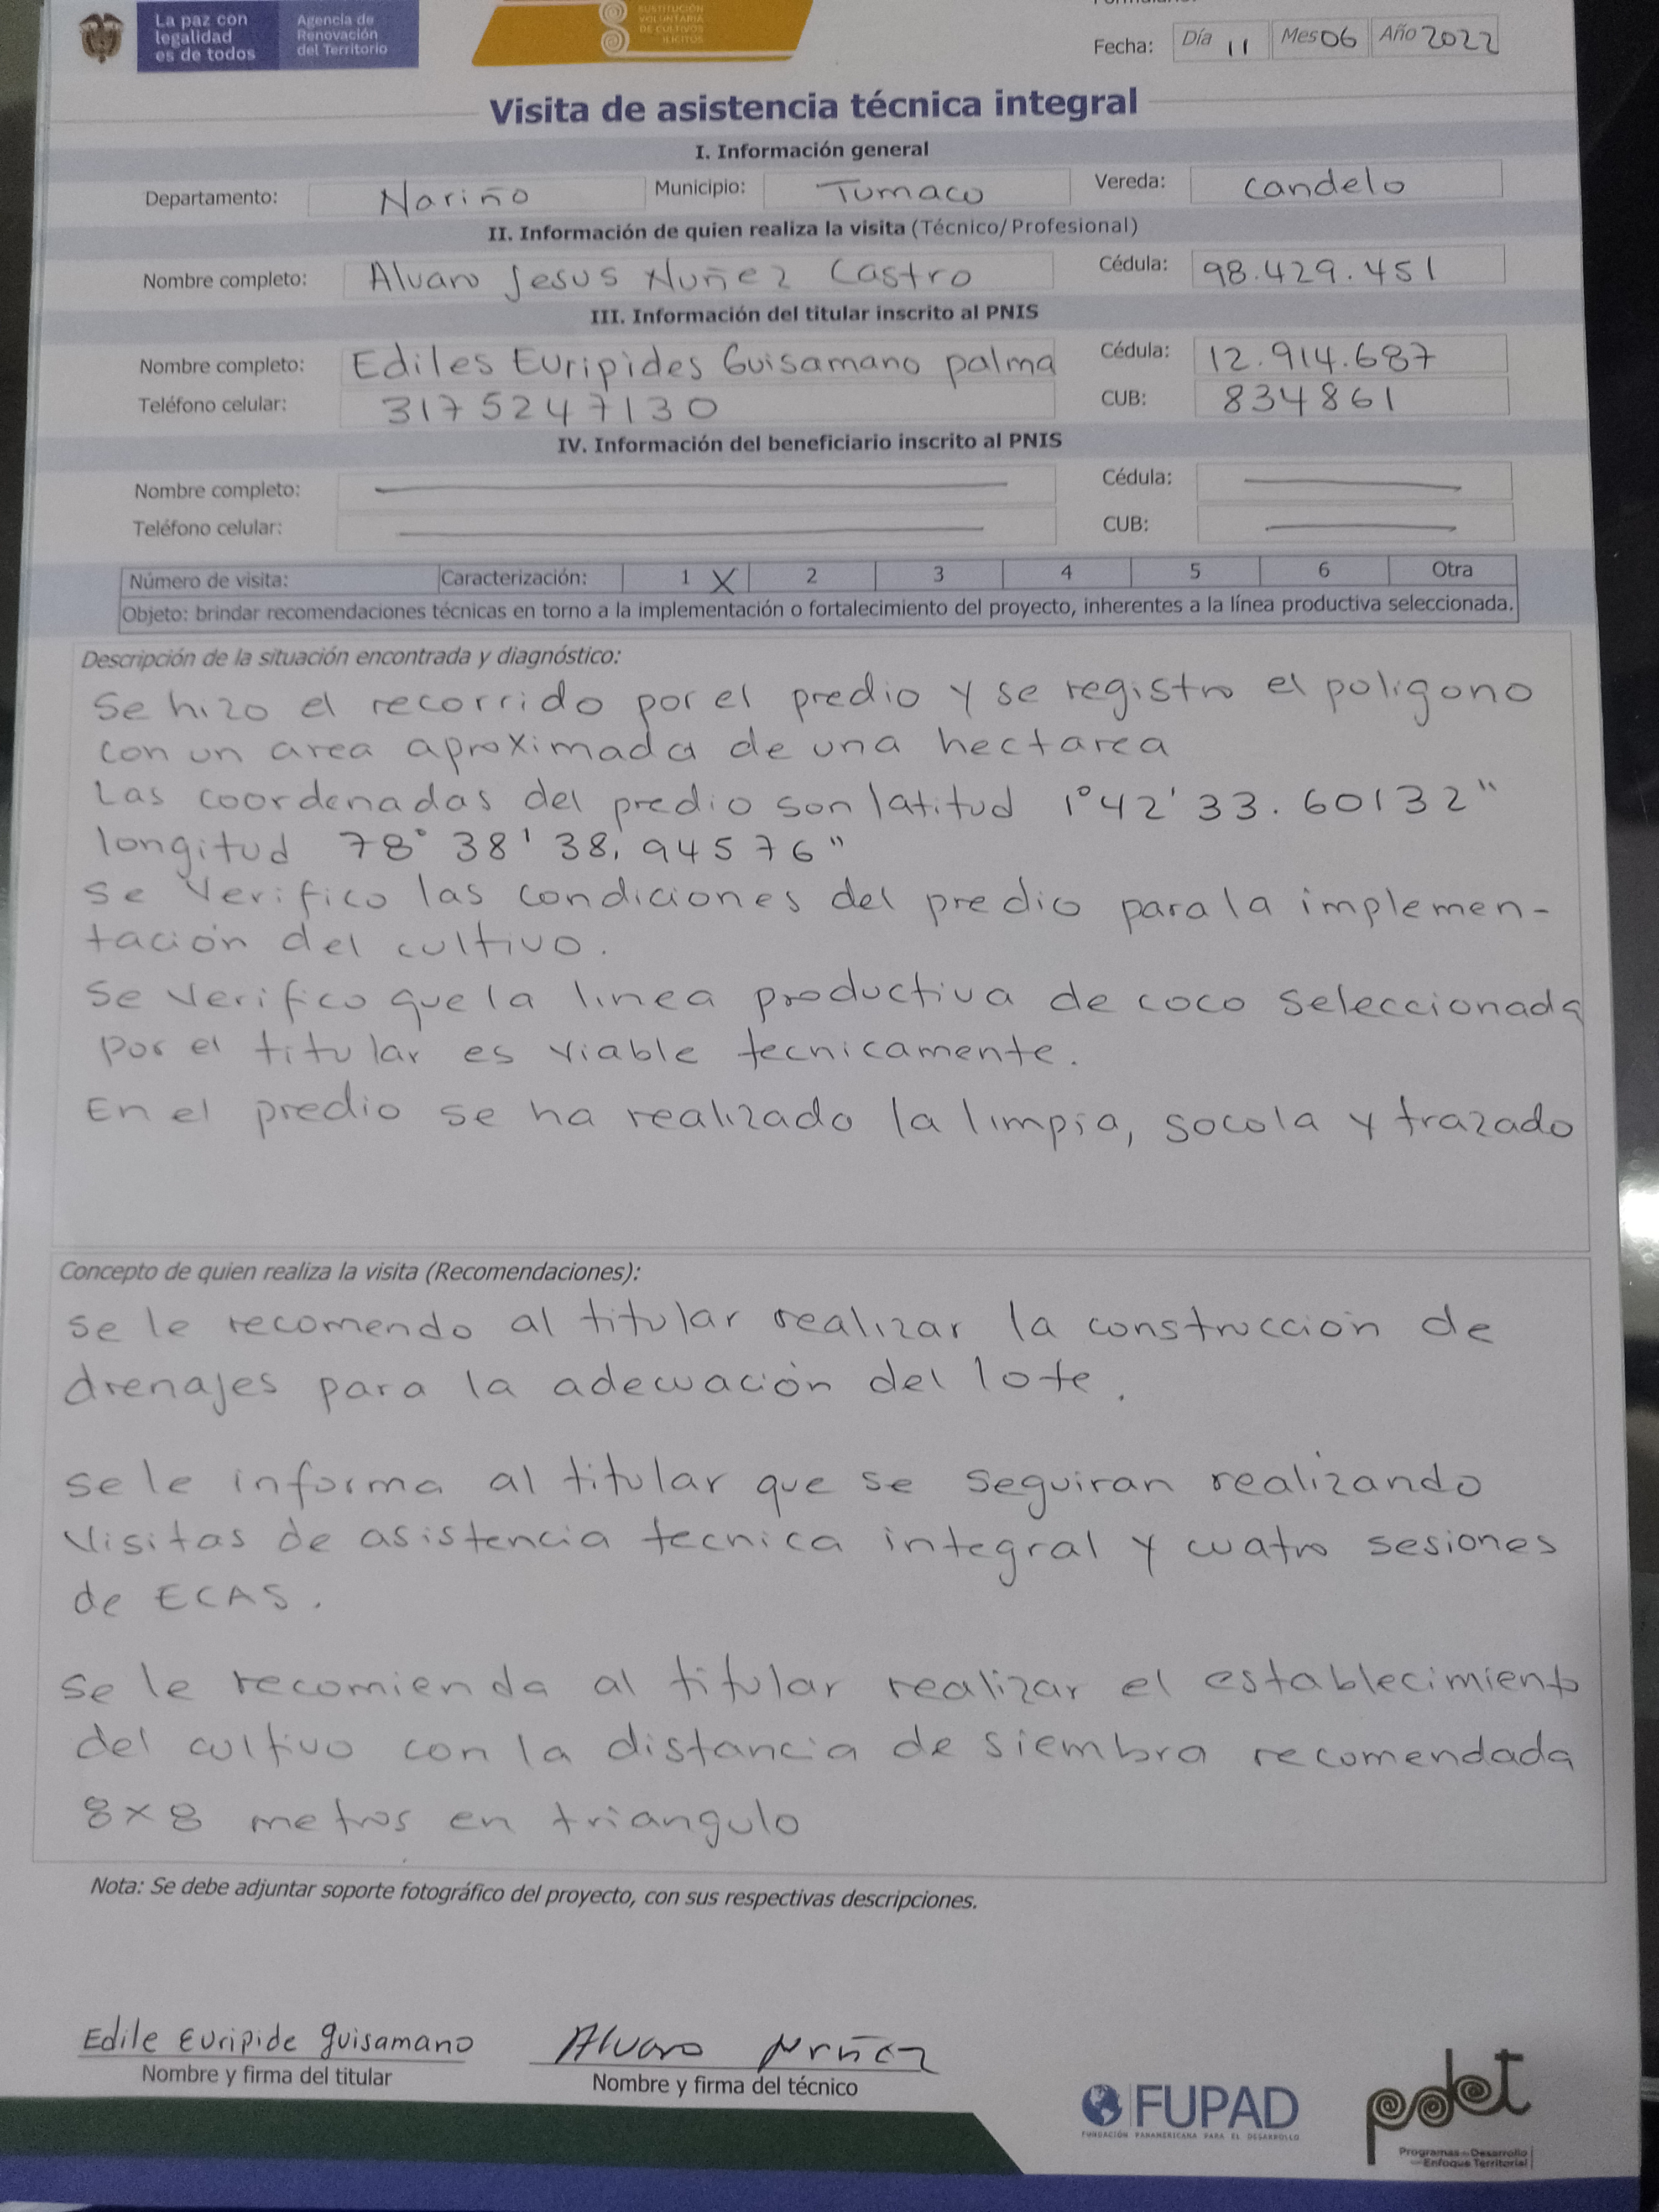 La paz con
legalidad
es de todos
Agencia de
Renovación
del Territorio
SUSTITUCIÓN
VOLUNTARIA
DE CULTIVOS
ILÍCITOS
Fecha: Día 11 Mes 06 Año 2022
Visita de asistencia técnica integral
I. Información general
Departamento: Nariño Municipio: Tumaco Vereda: Candelo
II. Información de quien realiza la visita (Técnico/Profesional)
Nombre completo: Alvaro Jesus Nuñez Castro Cédula: 98.429.451
III. Información del titular inscrito al PNIS
Nombre completo: Ediles Euripides Guisamano palma Cédula: 12.914.687
Teléfono celular: 3175247130 CUB: 834861
IV. Información del beneficiario inscrito al PNIS
Nombre completo: Cédula:
Teléfono celular: CUB:
Número de visita: Caracterización: 1 X 2 3 4 5 6 Otra
Objeto: brindar recomendaciones técnicas en torno a la implementación o fortalecimiento del proyecto, inherentes a la línea productiva seleccionada.
Descripción de la situación encontrada y diagnóstico:
Se hizo el recorrido por el predio y se registro el poligono
con un area aproximada de una hectarea
Las coordenadas del predio son latitud 1°42'33.60132"
longitud 78°38'38,94576"
Se Verifico las condiciones del predio para la implemen-
tación del cultivo.
Se Verifico que la linea productiva de coco seleccionada
por el titular es viable tecnicamente.
En el predio se ha realizado la limpia, socola y trazado
Concepto de quien realiza la visita (Recomendaciones):
se le recomendo al titular realizar la construcción de
drenajes para la adecuación del lote.
se le informa al titular que se seguiran realizando
Visitas de asistencia tecnica integral y cuatro sesiones
de ECAS.
se le recomienda al titular realizar el establecimiento
del cultivo con la distancia de siembra recomendada
8x8 metros en triangulo
Nota: Se debe adjuntar soporte fotográfico del proyecto, con sus respectivas descripciones.
Edile Euripide guisamano
Alvaro Nuñez
Nombre y firma del titular
Nombre y firma del técnico
FUPAD
FUNDACIÓN PANAMERICANA PARA EL DESARROLLO
pdet
Programas de Desarrollo
con Enfoque Territorial